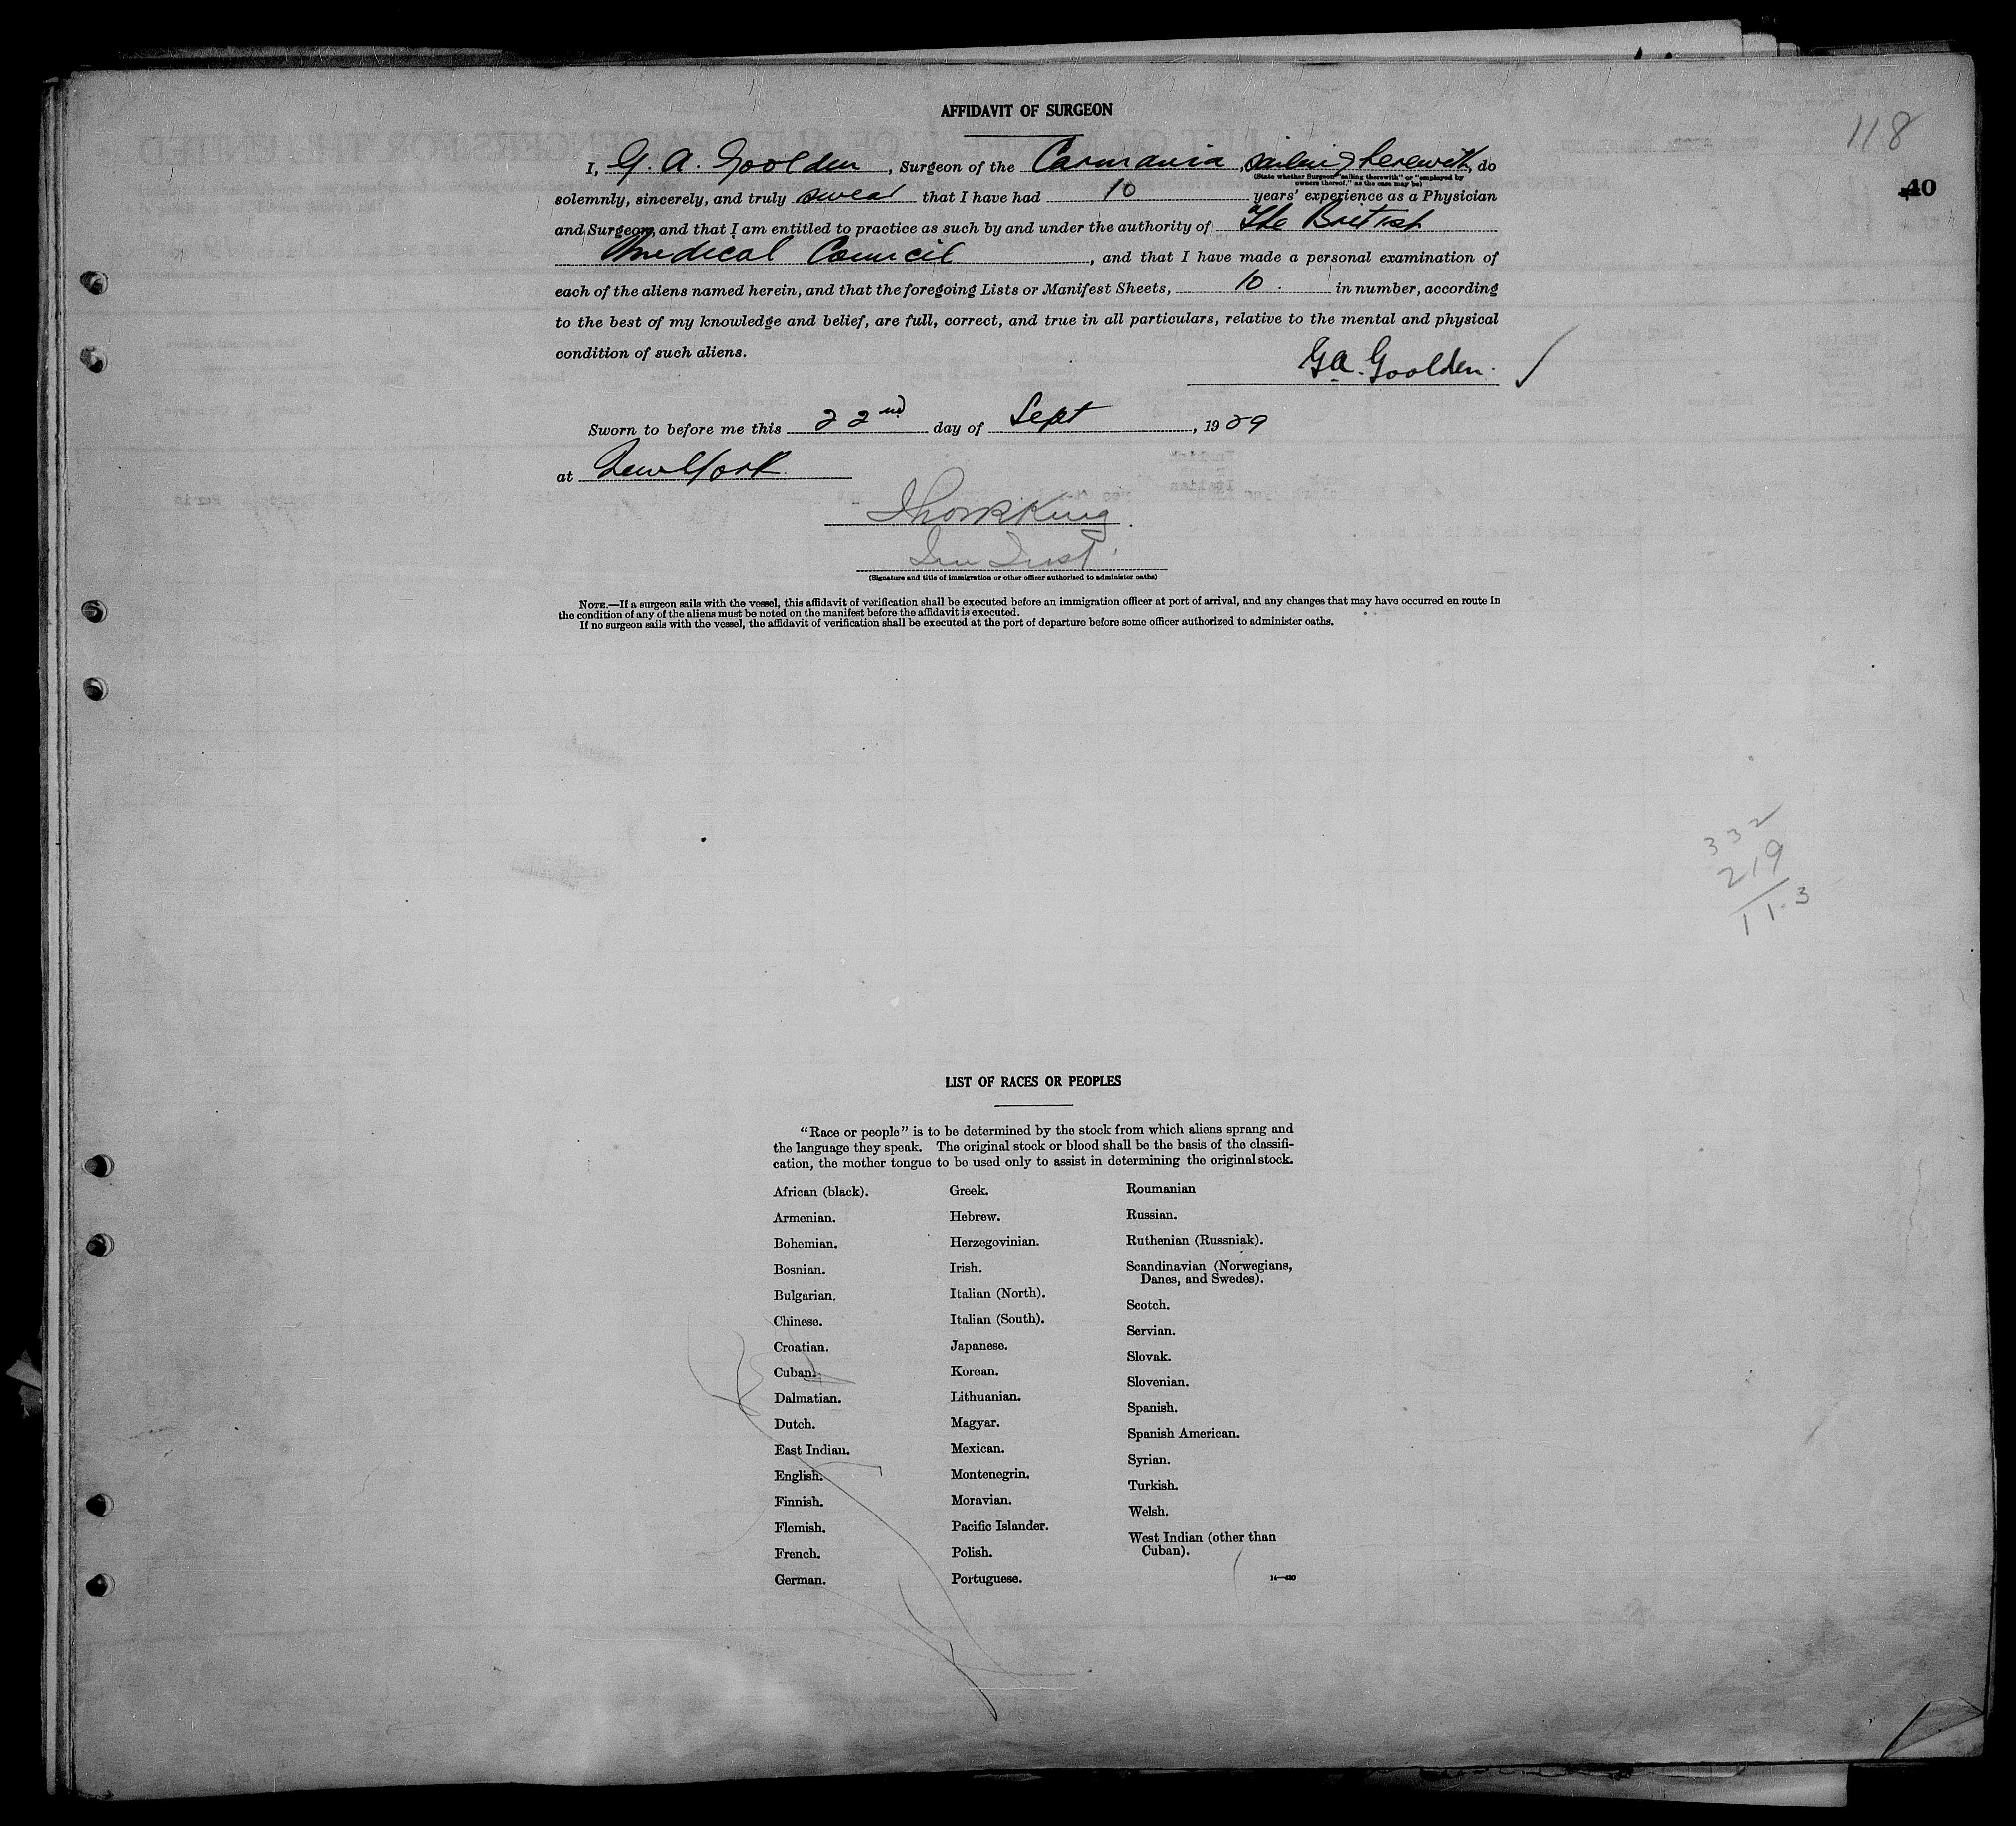 AFFIDAVIT OF SURGEON
118
40
I, G. A. Goolden, Surgeon of the Carmania, sailing herewith, do
(State whether Surgeon "sailing therewith" or "employed by
owners thereof," as the case may be)
solemnly, sincerely, and truly swear that I have had 10 years' experience as a Physician
and Surgeon, and that I am entitled to practice as such by and under the authority of The British
Medical Council, and that I have made a personal examination of
each of the aliens named herein, and that the foregoing Lists or Manifest Sheets, 10. in number, according
to the best of my knowledge and belief, are full, correct, and true in all particulars, relative to the mental and physical
condition of such aliens.
G.A. Goolden.
Sworn to before me this 22nd day of Sept, 1929
at New York
King
(Signature and title of immigration or other officer authorized to administer oaths)
NOTE.—If a surgeon sails with the vessel, this affidavit of verification shall be executed before an immigration officer at port of arrival, and any changes that may have occurred en route in
the condition of any of the aliens must be noted on the manifest before the affidavit is executed.
If no surgeon sails with the vessel, the affidavit of verification shall be executed at the port of departure before some officer authorized to administer oaths.
332
219
113
LIST OF RACES OR PEOPLES
"Race or people" is to be determined by the stock from which aliens sprang and
the language they speak. The original stock or blood shall be the basis of the classifi-
cation, the mother tongue to be used only to assist in determining the original stock.
African (black).
Armenian.
Bohemian.
Bosnian.
Bulgarian.
Chinese.
Croatian.
Cuban.
Dalmatian.
Dutch.
East Indian.
English.
Finnish.
Flemish.
French.
German.
Greek.
Hebrew.
Herzegovinian.
Irish.
Italian (North).
Italian (South).
Japanese.
Korean.
Lithuanian.
Magyar.
Mexican.
Montenegrin.
Moravian.
Pacific Islander.
Polish.
Portuguese.
Roumanian
Russian.
Ruthenian (Russniak).
Scandinavian (Norwegians,
Danes, and Swedes).
Scotch.
Servian.
Slovak.
Slovenian.
Spanish.
Spanish American.
Syrian.
Turkish.
Welsh.
West Indian (other than
Cuban).
14—430